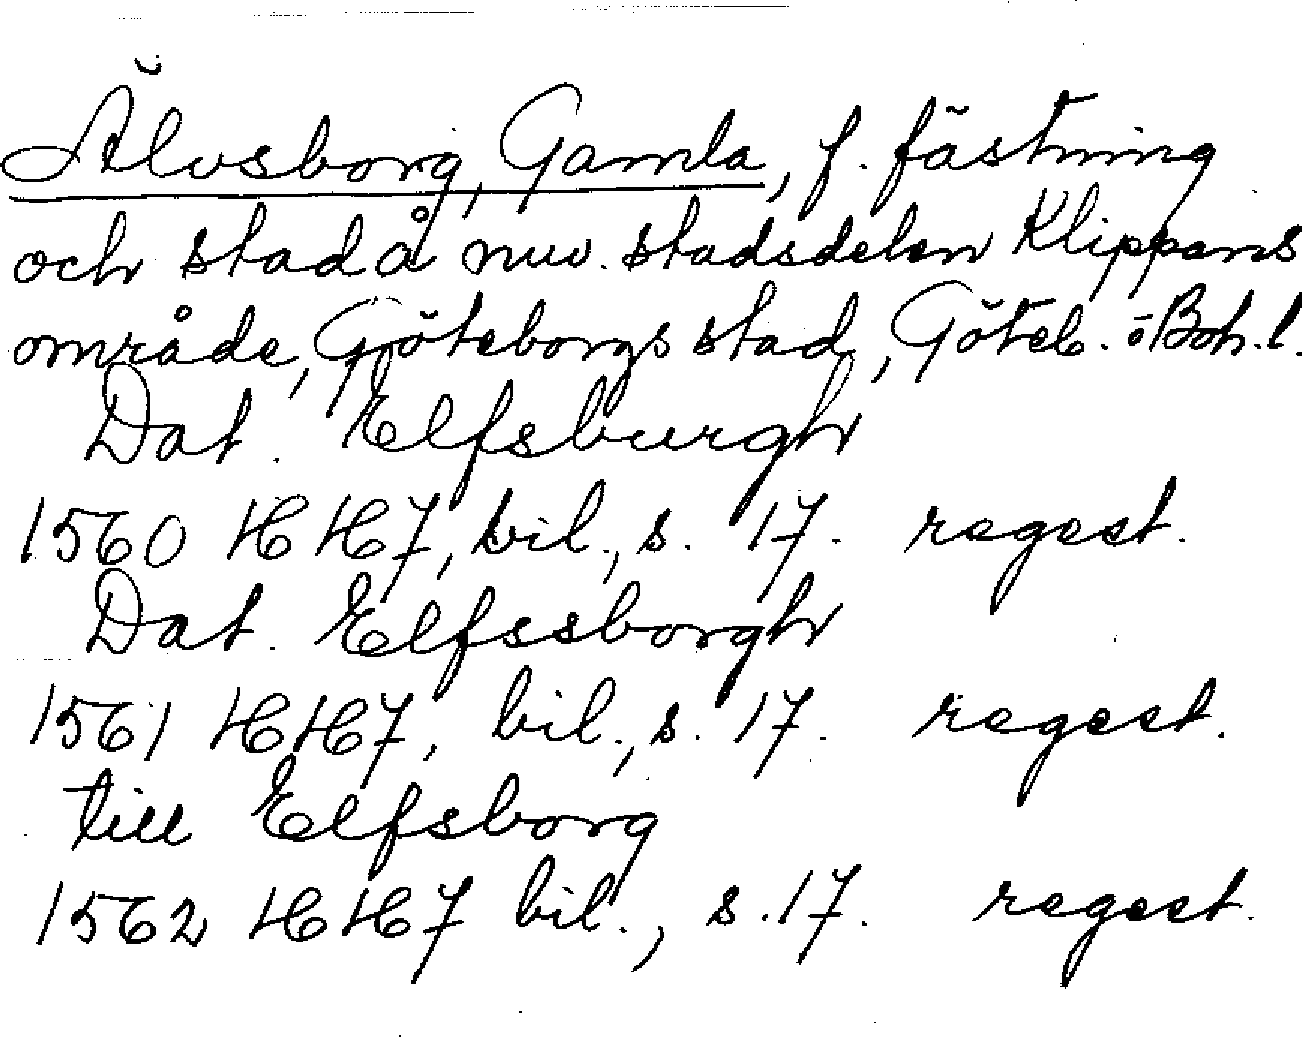 Älvsborg, Gamla, f. fästning
och stad å nuv. stadsdelen Klippans
område, Göteborgs stad, Göteb. o Boh. l.
Dat. Elfsburgh
1560 HH7, bil., s. 17. regest.
Dat. Elfssborgh
1561 HH7, bil., s. 17. regest.
till Elfsborg
1562 HH7 bil., s. 17. regest.